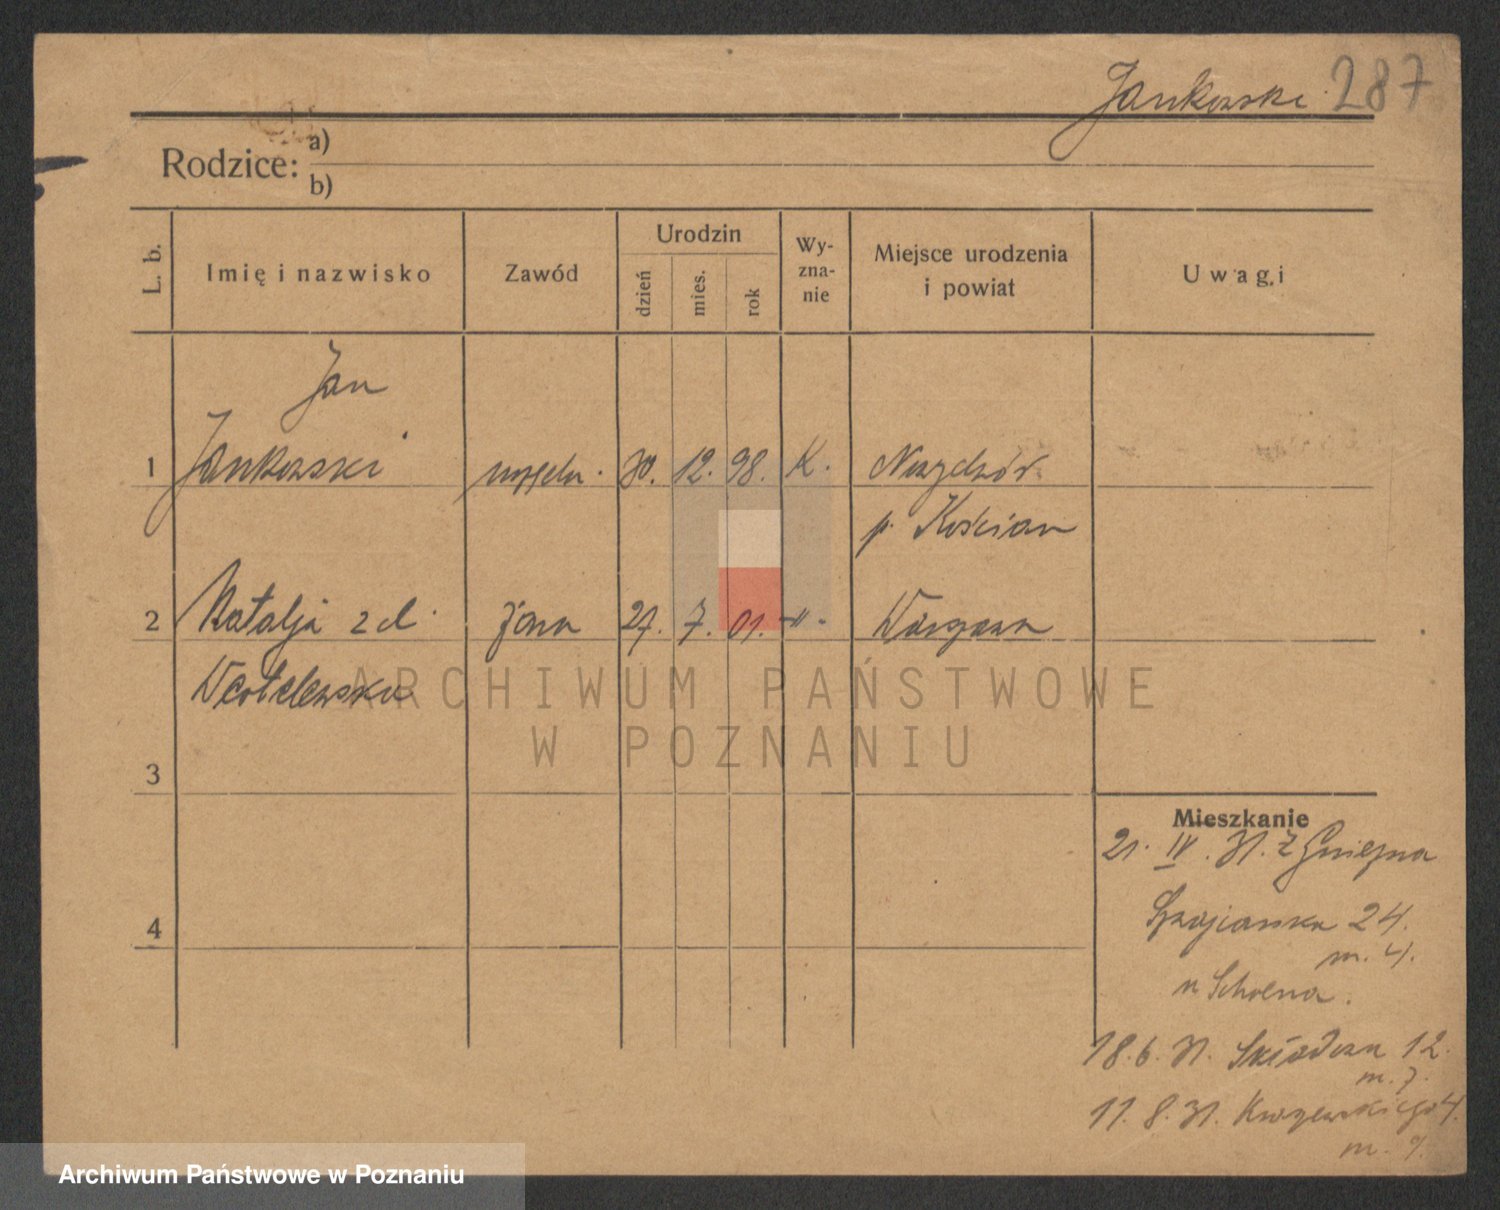 Jankowski 287
Rodzice: a)
b)
L. b.
Imię i nazwisko
Zawód
Urodzin
dzień
mies.
rok
Wy-
zna-
nie
Miejsce urodzenia
i powiat
Uwagi
Jan
1 Jankowski 30. 12. 98. K.
p. Kościan
2 Natalja z d. żona 27. 7. 01. -"-
3
4
ARCHIWUM PAŃSTWOWE
W POZNANIU
Mieszkanie
21. IV. 31. z Gniezna
24.
m. 4.
u
18. 6. 31. Składowa 12.
m. 7.
11. 8. 31. Kraszewskiego 4.
m. 9.
Archiwum Państwowe w Poznaniu